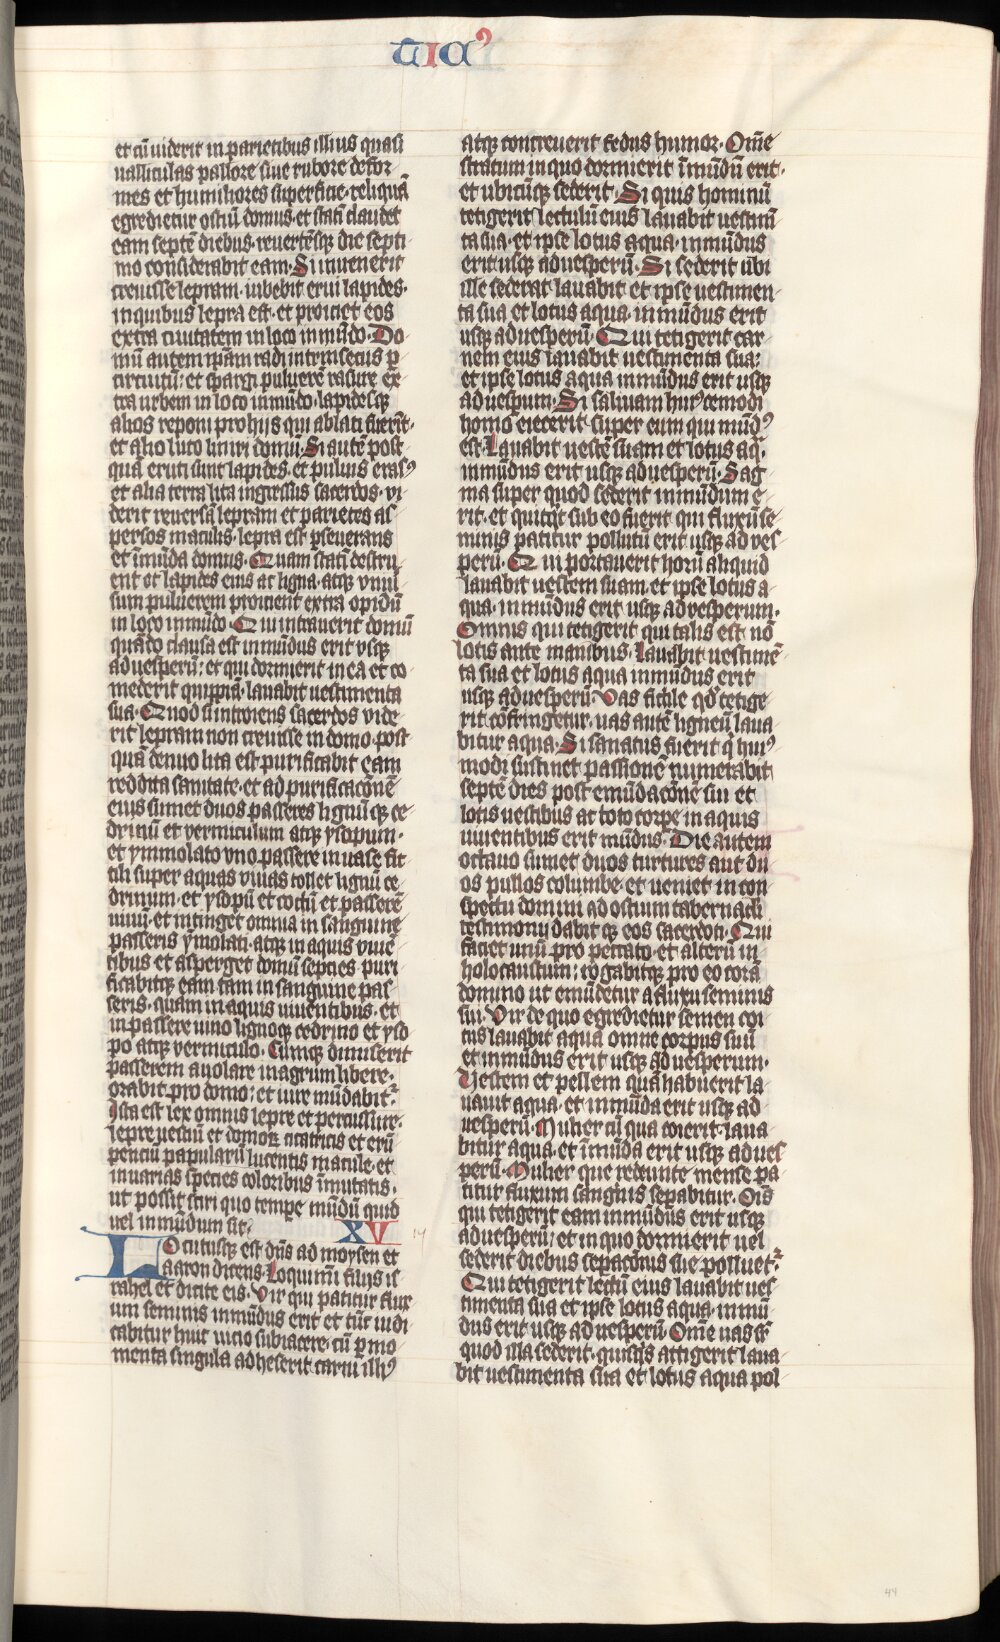 TIC9
et cū uiderit in parietibus illius quasi
ualliculas pallore siue rubore defor
mes et humiliores superficie· reliquā
egredietur ostiū domus· et statī claudet
eam septē diebus· reuertēsqȝ die septi
mo considerabit eam· Si inuenerit
creuisse lepram· iubebit erui lapides·
in quibus lepra est· et proiciet eos
extra ciuitatem in loco inmūdo· Do
mū autem ipsam radi intrinsecus p
circuitū· et spargi puluerē rasure ex
tra urbem in loco inmūdo· lapidesqȝ
alios reponi pro hijs qui ablati fuerīt·
et alio luto liniri domū· Si autē post
quā eruti sunt lapides· et puluis eras9
et alia terra lita ingressus sacerdos· vi
derit reuersā lepram et parietes as
persos maculis· lepra est pseuerans
et īmūda domus· Quam statī destru
ent et lapides eius ac ligna· atqȝ vniu
sum puluerem proicient extra opidū
in loco inmūdo· Qui intrauerit domū
quādo clausa est inmūdus erit vsqȝ
ad uesperū· et qui dormierit in ea et co
mederit quippiā· lauabit uestimenta
sua· Quod si introiens sacerdos vide
rit lepram non creuisse in domo· post
quā denuo lita est purificabit eam
reddita sanitate· et ad purificacōnē
eius sumet duos passeres lignūqȝ ce
drinū et vermiculum atqȝ ysopum·
et ymmolato vno passere in uase fic
tili super aquas viuas tollet lignū ce
drinum· et ysopū et coccū et passerē
uiuū· et intinget omnia in sanguine
passeris ymolati· atqȝ in aquis viuē
tibus et asperget domū septies puri
ficabitqȝ eam tam in sanguine pas
seris· quam in aquis uiuentibus· et
in passere uiuo lignoqȝ cedrino et yso
po atqȝ vermiculo· Cumqȝ dimiserit
passerem auolare in agrum libere·
orabit pro domo· et iure mūdabit2·
Ista est lex omnis lepre et percussure·
lepre uestiū et domoꝝ cicatricis et erū
pentiū papularū lucentis macule· et
in uarias species coloribus īmutatis·
ut possit sciri quo tempe mūdū quid
uel inmūdum sit· XV
Locutusqȝ est dn̄s ad moysen et
aaron dicens· Loquimī filijs is
rahel et dicite eis· Vir qui patitur flux
um seminis inmūdus erit et tūc iudi
cabitur huic uicio subiacere· cū p mo
menta singula adheserit carni illi9
atqȝ concreuerit fedus humor· Om̄e
stratum in quo dormierit īmūdū erit·
et ubicūqȝ sederit· Si quis hominū
tetigerit lectulū eius lauabit uestim̄
ta sua· et ipse lotus aqua· inmūdus
erit usqȝ ad uesperū· Si sederit ubi
ille sederat lauabit et ipse uestimen
ta sua et lotus aqua· inmūdus erit
usqȝ ad uesperū· Qui tetigerit car
nem eius lauabit uestimenta sua·
et ipse lotus aqua inmūdus erit usqȝ
ad uesperum· Si saliuam hui9cemodi
homo eiecerit· super eum qui mūd9
est· Lauabit uestē suam et lotus aq̄·
inmūdus erit usqȝ ad uesperū· Sag
ma super quod sederit inmūdum e
rit· et quicqt sub eo fuerit qui fluxū se
minis patitur pollutū erit usqȝ ad ves
perū· Qui portauerit horū aliquid
lauabit uestem suam· et ipse lotus a
qua· inmūdus erit usqȝ ad vesperum·
Omnis qui tetigerit qui talis est nō
lotis ante manibus· lauabit uestimē
ta sua et lotus aqua inmūdus erit
usqȝ ad uesperū· Vas fictile qd̄ tetige
rit cōfringetur· uas autē ligneū laua
bitur aqua· Si sanatus fuerit q hui9
modi sustinet passionē numerabit
septē dies post emūdacōnē sui et
lotis uestibus ac toto corpe in aquis
uiuentibus erit mūdus· Die autem
octauo sumet duos turtures aut du
os pullos columbe· et ueniet in con
spectu domini ad ostium tabernacli
testimonij dabitqȝ eos sacerdoti· Qui
faciet unū pro peccato· et alterū in
holocaustum· rogabitqȝ pro eo corā
domino ut emūdetur a fluxu seminis
sui· Vir de quo egredietur semen coi
tus lauabit aqua omne corpus suū
et inmūdus erit usqȝ ad uesperum·
Vestem et pellem quā habuerit la
vauit aqua· et inmūda erit usqȝ ad
uesperū· Mulier cū qua coierit· laua
bitur aqua· et īmūda erit usqȝ ad ues
perū· Mulier que redeunte mense pa
titur fluxum sanguis sepabitur· Oīs
qui tetigerit eam inmūdus erit usqȝ
ad uesperū· et in quo dormierit uel
sederit diebus sepacōnis sue polluet2·
Qui tetigerit lectū eius lauabit ues
timenta sua et ipse lotus aqua· inmū
dus erit usqȝ ad uesperū Om̄e uas sr̄
quod illa sederit· quisqs attigerit laua
bit uestimenta sua et lotus aqua pol
44